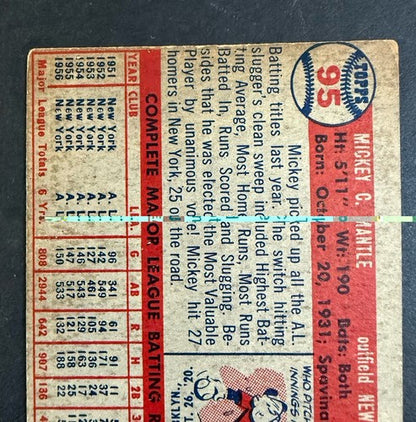 TOPPS
95
MICKEY C. MANTLE outfield NEW
Ht: 5'11" Wt: 190 Bats: Both
Born: October 20, 1931: Spavina
Mickey picked up all the A.L.
Batting titles last year. The switch hitting
slugger's clean sweep included Highest Bat-
ting Average, Most Home Runs, Most Runs
Batted In, Runs Scored and Slugging. Be-
sides that he was elected the Most Valuable
Player by unanimous vote! Mickey hit 27
homers in New York, 25 on the road.
WHO PITCH
INNINGS
T 26, '20.
KLYN,
COMPLETE MAJOR LEAGUE BATTING R
YEAR CLUB LEA. G AB R H 2B 3
1951 New York A. L. 96 341 61 91 11
1952 New York A. L. 142 549 94 171 37
1953 New York A. L. 127 461 105 136 24
1954 New York A. L. 146 543 129 163 17
1955 New York A. L. 147 517 121 158 25
1956 New York A. L. 150 533 132 188 22
Major League Totals 6 Yrs. 808 2944 642 907 136